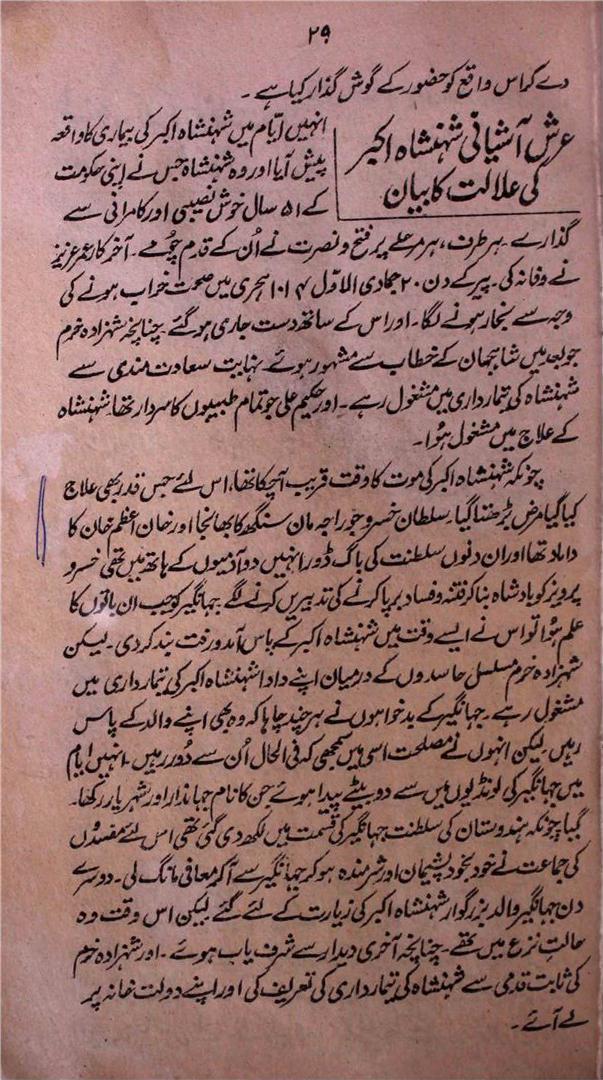 ۲۹
دے کر اس واقع کو حضور کے گوش گذار کیا ہے ۔
عرش آشیانی شہنشاہ اکبر
کی علالت کا بیان
انہیں ایّام میں شہنشاہ اکبر کی بیماری کا واقعہ
پیش آیا اور وہ شہنشاہ جس نے اپنی حکومت
کے ۵۱ سال خوش نصیبی اور کامرانی سے
گذارے ۔ ہر طرف، ہر مرحلے پر فتح و نصرت نے اُن کے قدم چومے ۔ آخر کار عمر عزیز
نے وفا نہ کی ۔ پیر کے دن ۲۰ جمادی الاوّل ۱۰۱۴ ہجری میں صحت خراب ہونے کی
وجہ سے بخار ہونے لگا ۔ اور اس کے ساتھ دست جاری ہو گئے ۔ چنانچہ شہزادہ خرم
جو بعد میں شاہجہان کے خطاب سے مشہور ہوئے ۔ نہایت سعادت مندی سے
شہنشاہ کی تیمارداری میں مشغول رہے ۔ اور حکیم علی جو تمام طبیبوں کا سردار تھا شہنشاہ
کے علاج میں مشغول ہوُا ۔
چونکہ شہنشاہ اکبر کی موت کا وقت قریب آچکا تھا، اس لئے جس قدر بھی علاج
کیا گیا مرض بڑھتا گیا ۔ سلطان خسرو جو راجہ مان سنگھ کا بھانجا اور خان اعظم خان کا
داماد تھا اور ان دنوں سلطنت کی باگ ڈور انہیں دو آدمیوں کے ہاتھ میں تھی خسرو
پرویز کو بادشاہ بنا کر فتنہ و فساد برپا کرنے کی تدبیریں کرنے لگے جہانگیر کو جب ان باتوں کا
علم ہوُا تو اس نے ایسے وقت میں شہنشاہ اکبر کے پاس آمد و رفت بند کر دی ۔ لیکن
شہزادہ خرم مسلسل حاسدوں کے درمیان اپنے دادا شہنشاہ اکبر کی تیمارداری میں
مشغول رہے ۔ جہانگیر کے بدخواہوں نے ہر چند چاہا کہ وہ بھی اپنے والد کے پاس
رہیں ۔ لیکن انہوں نے مصلحت اسی میں سمجھی کہ فی الحال اُن سے دُور رہیں ۔ انہیں ایام
میں جہانگیر کی لونڈیوں میں سے دو بیٹے پیدا ہوئے جن کا نام جہاندار اور شہریار رکھا ۔
گیا چونکہ ہندوستان کی سلطنت جہانگیر کی قسمت میں لکھ دی گئی تھی اس لئے مفسدوں
کی جماعت نے خود بخود پشیمان اور شرمندہ ہو کر جہانگیر سے آکر معافی مانگ لی ۔ دوسرے
دن جہانگیر والد بزرگوار شہنشاہ اکبر کی زیارت کے لئے گئے لیکن اس وقت وہ
حالتِ نزع میں تھے ۔ چنانچہ آخری دیدار سے شرف یاب ہوئے ۔ اور شہزادہ خرم
کی ثابت قدمی سے شہنشاہ کی تیمارداری کی تعریف کی اور اپنے دولت خانہ پر
لے آئے ۔